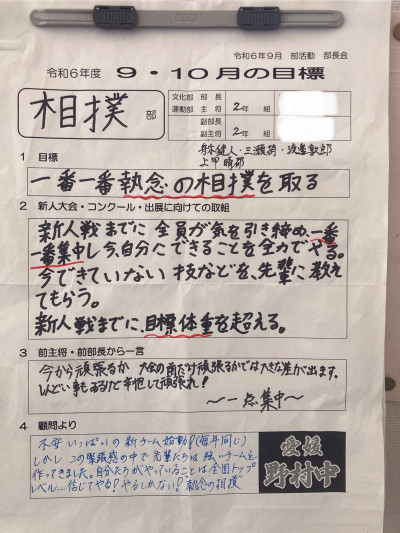 令和6年9月 部活動 部長会
令和6年度 9・10月の目標
相撲 部
文化部 部長
運動部 主将 2年 組
副部長
副主将 2年 組
1 目標
一番一番執念の相撲を取る
2 新人大会・コンクール・出展に向けての取組
新人戦までに全員が気を引き締め、一番
一番集中し今、自分にできることを全力でやる。
今できていない技などを、先輩に教え
てもらう。
新人戦までに、目標体重を超える。
3 前主将・前部長から一言
今から頑張るか 大会の前だけ頑張るかでは大きな差が出ます。
しんどい事もあるけど辛抱して頑張れ!
〜一点集中〜
4 顧問より
不安いっぱいの新チーム始動!(毎年同じ)
しかしこの緊張感の中で先輩たちは強いチームを
作ってきました。自分たちがやっていることは全国トップ
レベル…信じてやる!やるしかない!執念の相撲
愛媛
野村中